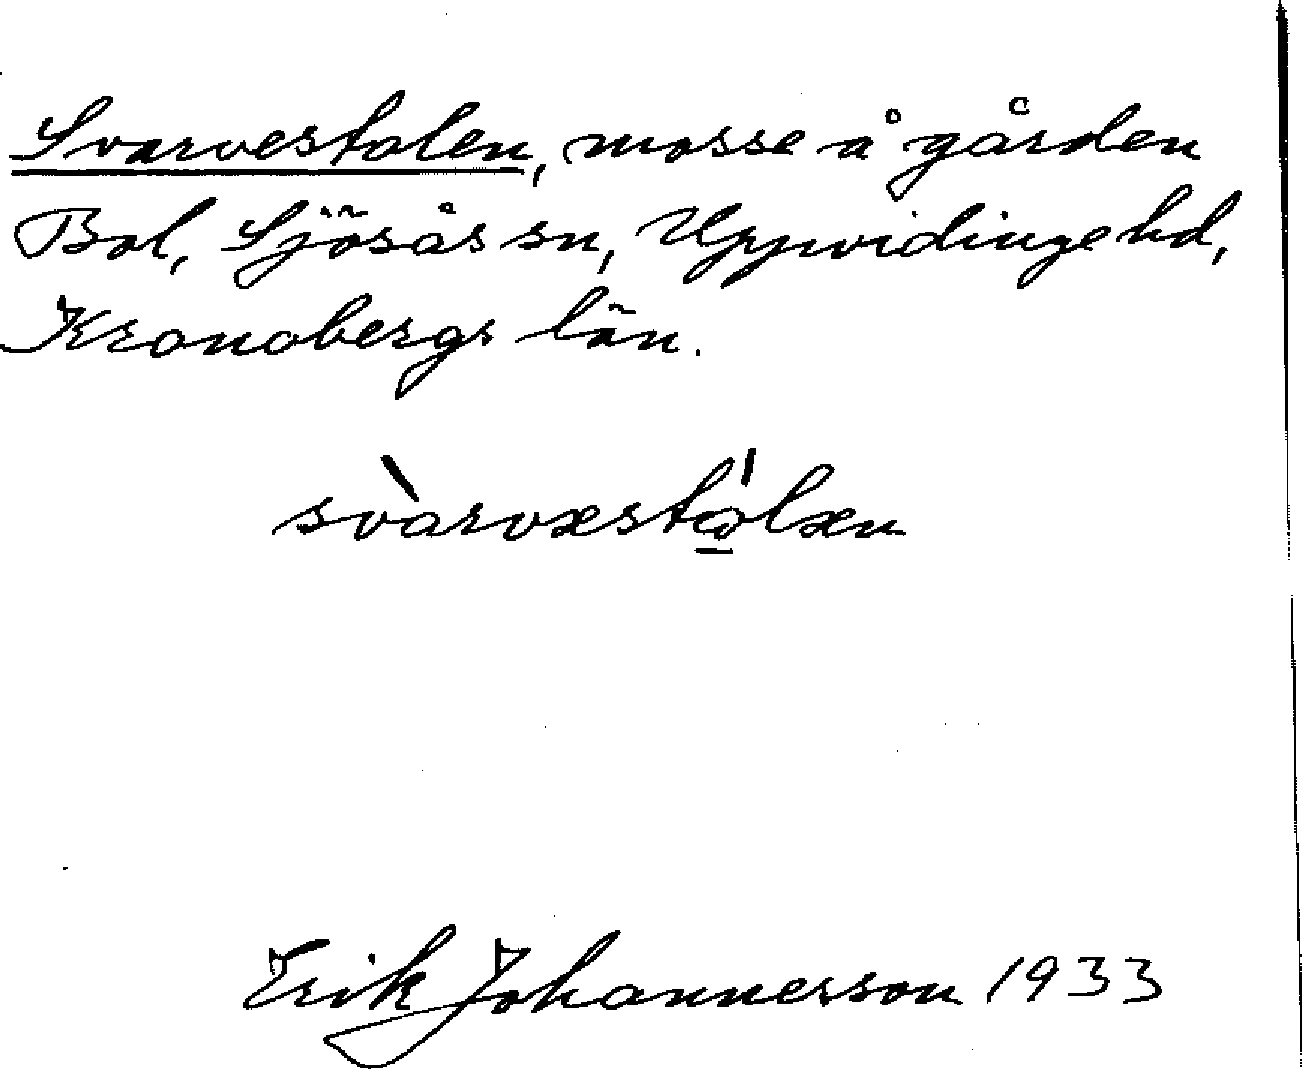 Svarvestolen, mosse å gården
Bol, Sjösås sn, Uppvidinge hd,
Kronobergs län.
svàrvəstώ̲lən
Erik Johannesson 1933